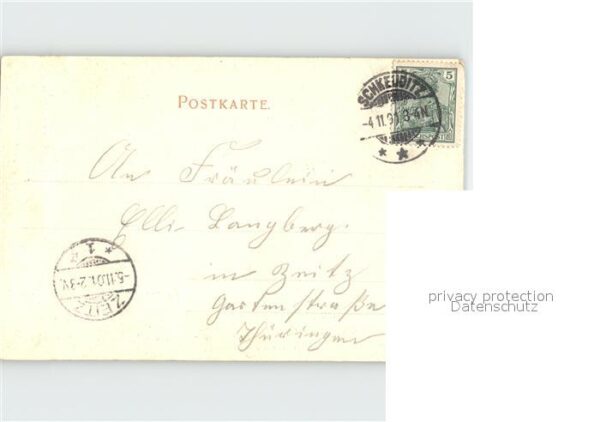 POSTKARTE.
SCHKEUDITZ
-4.11.  3-4N.
5
An Fräulein
Elli Langberg.
in Zeitz
Gartenstraße
Thüringen
* 1 *
-5.11.01. 2-3N.
ZEITZ
privacy protection
Datenschutz